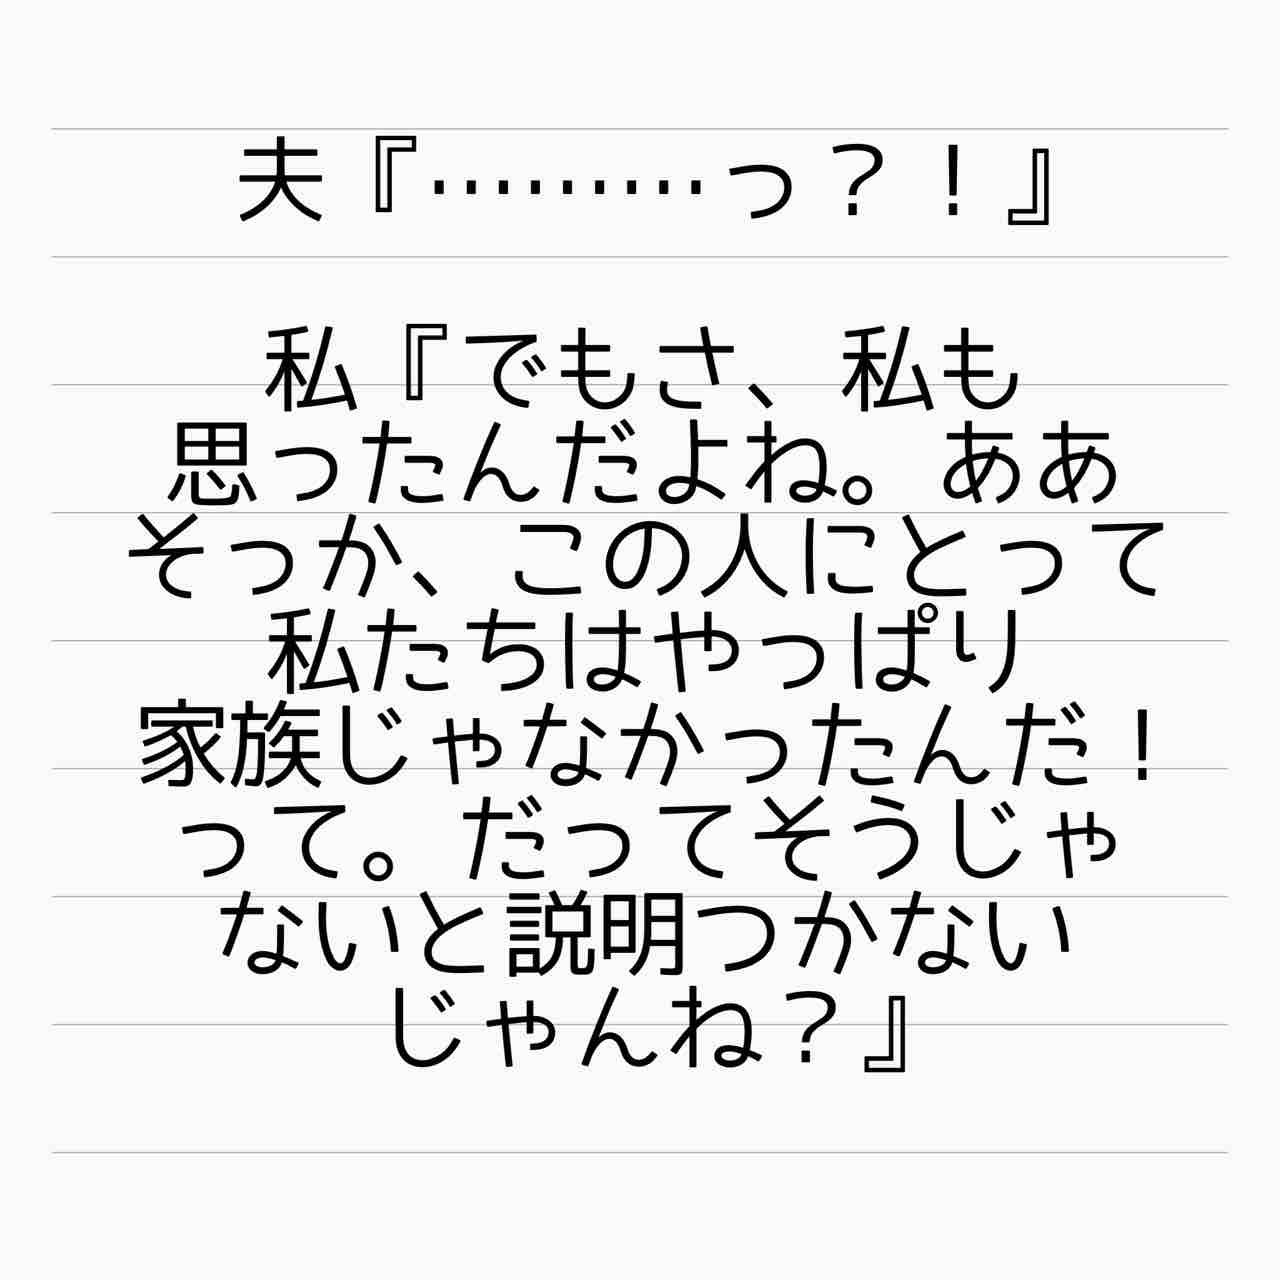 夫『………っ？！』
私『でもさ、私も
思ったんだよね。ああ
そっか、この人にとって
私たちはやっぱり
家族じゃなかったんだ！
って。だってそうじゃ
ないと説明つかない
じゃんね？』